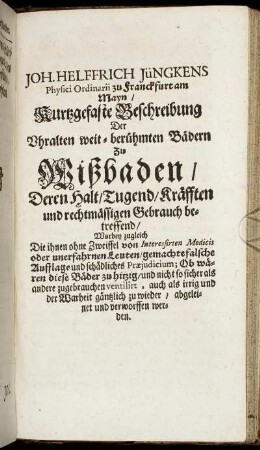 JOH. HELFFRICH JüNGKENS
Physici Ordinarii zu Franckfurt am
Mayn /
Kurtzgefaste Beschreibung
Der
Vhralten weit-berühmten Bädern
Zu
Wißbaden /
Deren Halt / Tugend / Kräfften
und rechtmässigen Gebrauch be-
treffend /
Worbey zugleich
Die ihnen ohne Zweiffel von Interessirten Medicis
oder unerfahrnen Leuten / gemachte falsche
Aufflage und schädliches Præjudicium; Ob wä-
ren diese Bäder zu hitzig / und nicht so sicher als
andere zugebrauchen ventilirt, auch als irrig und
der Warheit gäntzlich zu wieder / abgelei-
net und verworffen wer-
den.